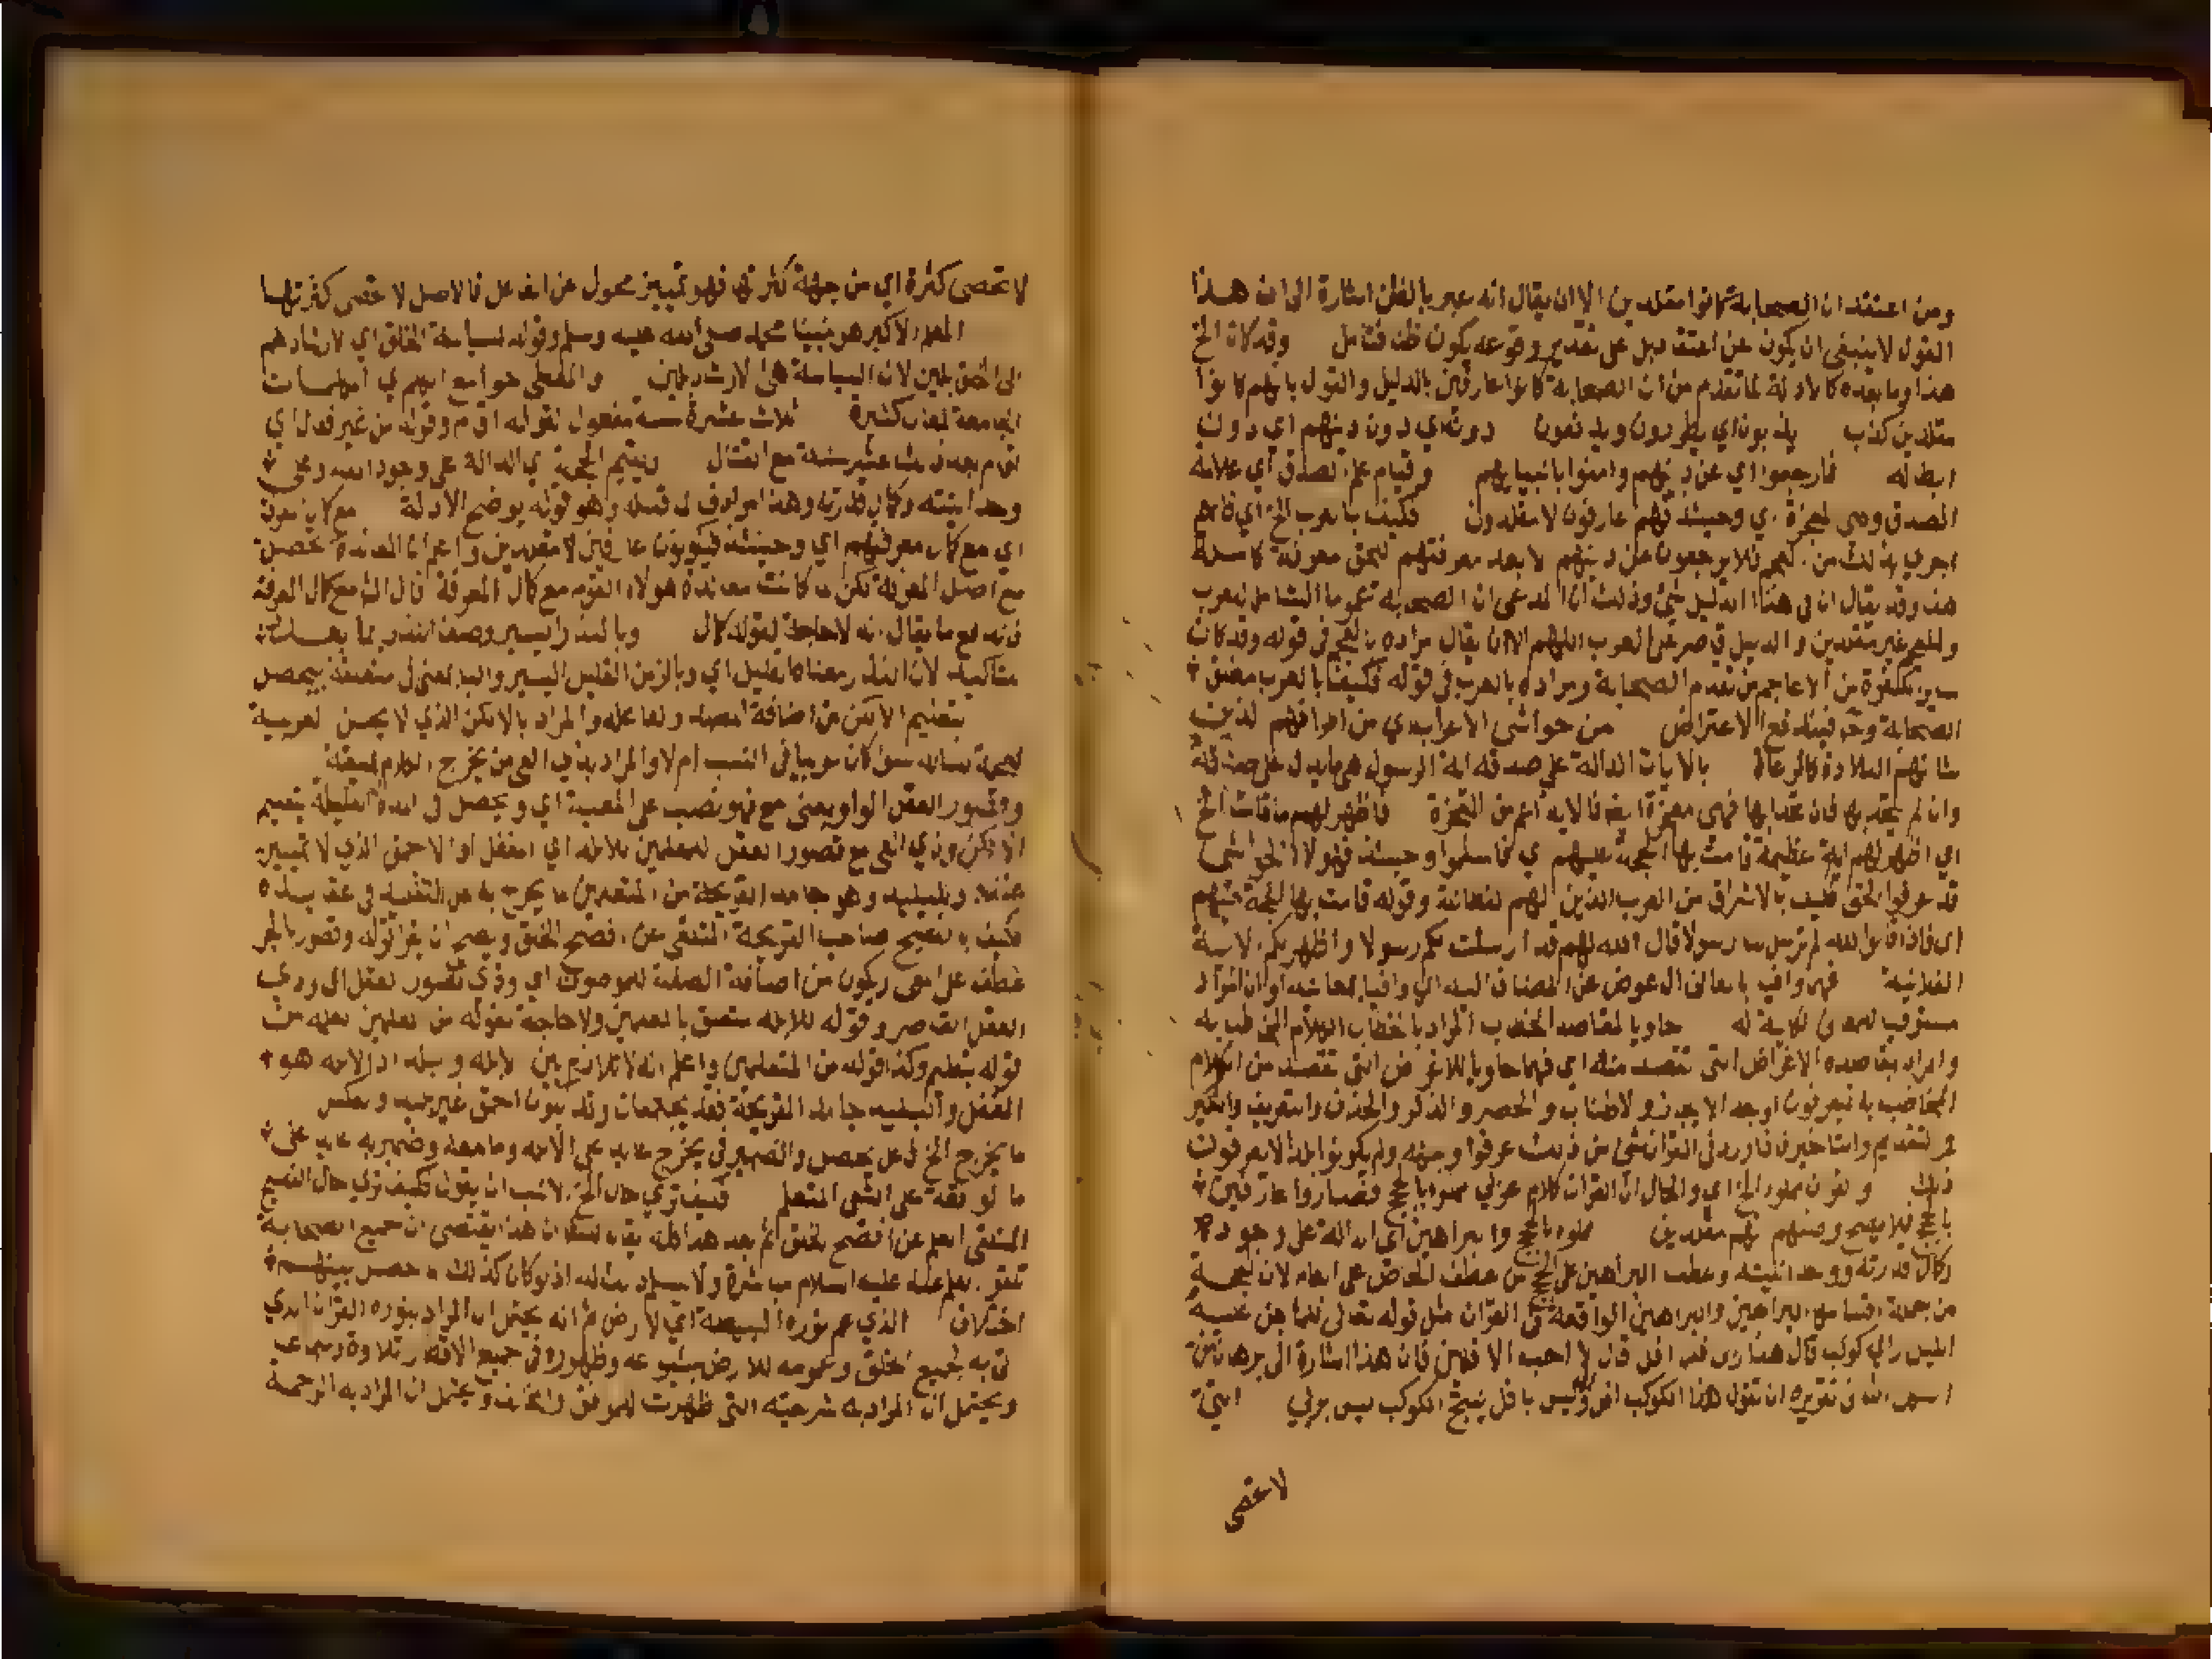 ومن اعتقد ان الصحابة كانوا مقلدين الا ان يقال انه عبر بالظن اشارة الى ان هذا
القول لا ينبغي ان يكون عن اعتقاد بل على تقدير وقوعه يكون ظنا فتامل وقد كان الخ
هذا وما بعده كالادلة لما تقدم من ان الصحابة كانوا عارفين بالدليل والقول بانهم كانوا
مقلدين كذب يذبون اي يطردون ويدفعون دونه اي دون دينهم اي دون
ابطاله فارجعوا اي عن دينهم وامنوا بانبيايهم وقيام علم الصدق اي علامة
الصدق وهي المعجزة اي وحينئذ فهم عارفون لا مقلدون فكيف بالعرب الخ اي فاذا هم
اجري بذلك من العجم فلا يرجعون عن دينهم الا بعد معرفتهم للحق معرفة كاملة
هذا وقد يقال ان في هذا الدليل شئ وذلك ان المدعى ان الصحابة عموما الشامل للعرب
والعجم غير مقلدين والدليل قاصر على العرب اللهم الا ان يقال مراده بالعجم في قوله وقد كان
من الاعاجم من تقدم الصحابة ومراده بالعرب في قوله فكيف بالعرب مطلق
الصحابة وحينئذ فاندفع الاعتراض من حواشي الاعراب اي من اطرافهم الذين
شانهم البلادة كالرعاة بالايات الدالة على صدقه اية الرسول هي ما يدل على صدقه
وان لم يتحد بها فان تحدا بها فهي معجزة ايضا فالاية اعم من المعجزة فاظهر لهم ما قامت الخ
اي اظهر لهم اية عظيمة قامت بها الحجة عليهم اي فاسلموا وحينئذ فهولاء الحواشي
قد عرفوا الحق فكيف بالاشراق من العرب الذين لهم فطانة وقوله قامت بها الحجة عليهم
اي فاذا قالوا لله لم ترسل لنا رسولا قال الله لهم قد ارسلت لكم رسولا واظهر لكم الاية
الفلانية فهما وافيا بالمعاني ال عوض عن المضاف اليه اي وافيا بمعانيه او ان المراد
مستوف للمعاني حاويا لمقاصد الخطاب المراد بالخطاب الكلام المخاطب به
والمراد بمقاصده الاغراض التي تقصد منه اي فهما حاويا للاغراض التي تقصد من الكلام
المخاطب به فيعرفون اوجه الايجاز والاطناب والحصر والذكر والحذف والتعريف والتنكير
والتقديم والتاخير فما ورد في القران شئ من ذلك عرفوا وجهه ولم يكونوا بلدا لا يعرفون
ذلك والقران مملوء الخ اي والحال ان القران كلام عربي مملوء بالحجج فصاروا عارفين
بالحجج فلا يصح وصفهم بانهم مقلدين مملوء بالحجج والبراهين اي الدالة على وجوده
وكمال قدرته ووحدانيته وعطف البراهين على الحجج من عطف الخاص على العام لان الحجة
من جملة اقسامها البراهين والبراهين الواقعة في القران مثل قوله تعالى فلما جن عليه
الليل راى كوكبا قال هذا ربي فلما افل قال لا احب الافلين فان هذا اشارة الى برهان من
الشكل الثاني تقريره ان تقول هذا الكوكب افل وربي ليس بافل ينتج الكوكب ليس بربي التي
لا تحصى
لا تحصى كثرة اي من جهة كثرتها فهو تمييز محول عن الفاعل فالاصل لا تحصى كثرتها
المعلم الاكبر هو نبينا محمد صلى الله عليه وسلم وقوله لسياسة الخلق اي لارشادهم
الى الحق لان السياسة هي الارشاد والمعطي جوامع الكلم اي الكلمات
الجامعة لمعان كثيرة ثلاث عشرة سنة مفعول لقوله اقام وقوله من غير قتال اي
اقام بعد ذلك عشر سنة مع القتال ويقيم الحجة اي الدالة على وجود الله وعلى
وحدانيته وكمال قدرته وهذا مرادف لما قبله وهو قوله يوضح الادلة مع كمال معرفة
اي مع كمال معرفتهم اي وحينئذ فيكونون عارفين لا مقلدين واعلم ان المعاندة تحصل
مع اصل المعرفة لكن لما كانت معاندة هولاء القوم مع كمال المعرفة قال الشم مع كمال المعرفة
فاندفع ما يقال انه لا حاجة لقوله كمال وبالنذر اليسير وصف النذر بما بعده
تاكيد لان النذر معناه القليل اي وبالزمن القليل اليسير والباء بمعنى في متعلقة بيحصل
بتعليم الالكن من اضافة المصدر لفاعله والمراد بالالكن الذي لا يحسن العربية
لعجمة بلسانه سوا كان عربيا في النسب ام لا والمراد بذي العي من يخرج الكلام بمشقة
وقصور العقل الواو بمعنى مع فهو نصب على المعية اي ويحصل في المدة القليلة بتعليم
الالكن وذي العي مع قصور العقل للمعلمين للابله اي المغفل او الاحمق الذي لا تمييز
عنده والبليد وهو جامد القريحة من المتعلمين ما يخرج به عن التقليد في عقائده
فكيف بتعليم صاحب القريحة المتلقي عن افصح الخلق ويصح ان يقرا قوله وقصور بالجر
عطف على العي ويكون من اضافة الصفة للموصوف اي وذي قصور العقل اي وذي
العقل القاصر وقوله للابله متعلق بالمعلمين ولا حاجة لقوله من المعلمين لعلمه من
قوله بتعليم وكذا قوله من المتعلمين واعلم انه لا تلازم بين الابله والبليد اذ الابله هو
المغفل والبليد جامد القريحة فقد يجتمعان وقد يكون احمق غير بليد وبالعكس
ما يخرج الخ فاعل يحصل والضمير في يخرج عايد على الابله وما معه وضمير به عايد على
ما لو وقعه على الشئ المتعلم فكيف ترى حال الخ الانسب ان يقول فكيف ترى حال الفصيح
المتلقي العلم عن افصح الخلق ثم بعد هذا كله يقال للشم ان هذا يقتضي ان جميع الصحابة
تلقوا العلم عنه عليه السلام مباشرة ولا يسلم ذلك له اذ لو كان كذلك ما حصل بينهم
اختلاف الذي عم نوره البسيطة اي الارض ثم انه يحتمل ان المراد بنوره القران الذي
اتى به لجميع الخلق وعمومه للارض بشيوعه وظهوره في جميع الاقطار تلاوة وسماعا
ويحتمل ان المراد به شرعيته التي ظهرت للموافق والمخالف ويحتمل ان المراد به الرحمة